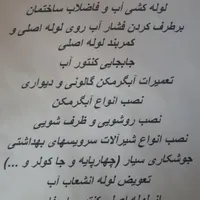 لوله کشی آب و فاضلاب ساختمان
برطرف کردن فشار آب روی لوله اصلی و
کمربند لوله اصلی
جابجایی کنتور آب
تعمیرات آبگرمکن گالونی و دیواری
نصب انواع آبگرمکن
نصب روشویی و ظرف شویی
نصب انواع شیرآلات سرویسهای بهداشتی
جوشکاری سیار (چهارپایه و جا کولر و ...)
تعویض لوله انشعاب آب